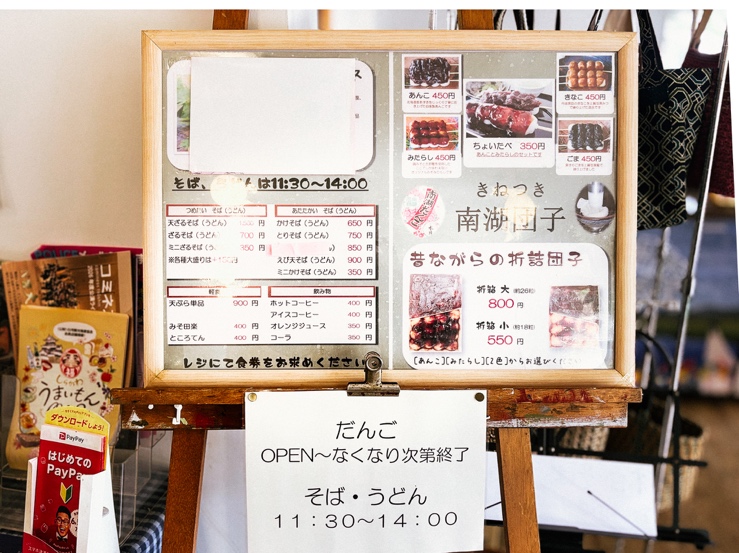 そば、うどんは11:30～14:00
つめたい そば（うどん）
天ざるそば（うどん）
ざるそば（うどん
700 円
ミニざるそば（う
350 円
※各種大盛りは+
あたたかい そば（うどん）
かけそば（うどん） 650 円
とりそば（うどん） 750 円
850 円
えび天そば（うどん） 900 円
ミニかけそば（うどん） 350 円
軽食
天ぷら単品 900 円
みそ田楽 400 円
ところてん 400 円
飲み物
ホットコーヒー 400 円
アイスコーヒー 400 円
オレンジジュース 350 円
コーラ 350 円
レジにて食券をお求めください
あんこ 450円
みたらし 450円
ちょいたべ 350円
あんことみたらしのセットです
きなこ 450円
ごま 450円
きねつき
南湖団子
昔ながらの折詰団子
折箱 大 (約26粒)
800 円
折箱 小 (約18粒)
550 円
[あんこ][みたらし][2色]からお選びください
だんご
OPEN～なくなり次第終了
そば・うどん
11：30～14：00
コミネ
うまいもん
ダウンロードしよう!
PayPay
はじめての
PayPa